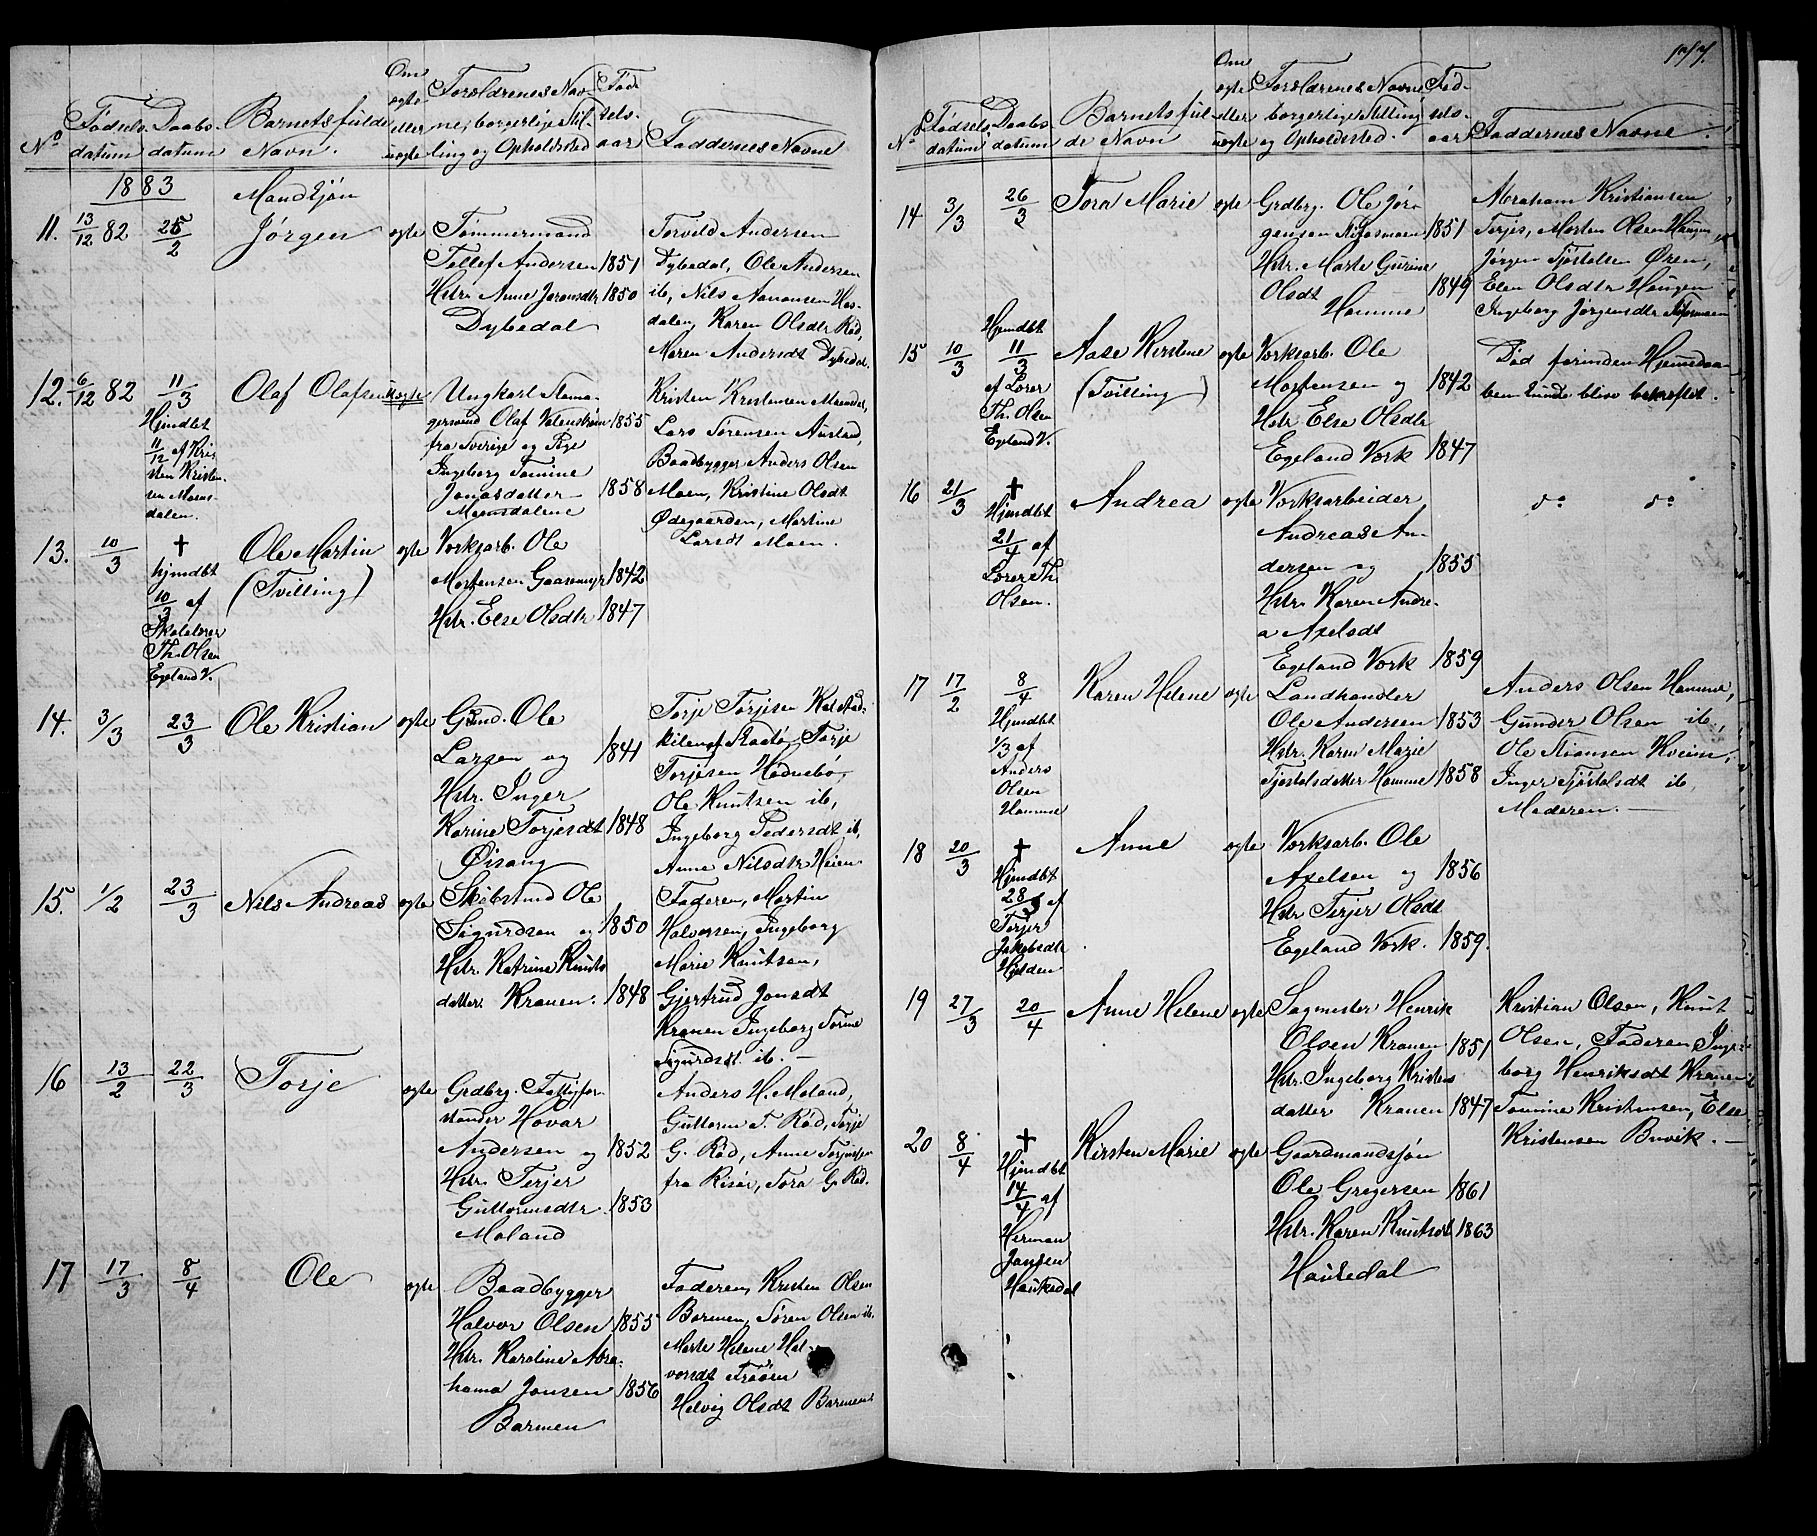 No
Fødsels-
datum
Daabs-
datum
Barnets fulde
Navn.
Om
ægte
eller
uægte
Forældrenes Nav-
ne, borgerlige Stil-
ling og Opholdssted
Fød-
sels-
aar
Faddernes Navne
1883
Mandkjøn
11. 13/12 82
25/2
Jørgen
ægte
Tømmermand
Tellef Andersen 1851
Hstr. Anne Joransdtr 1850
Dybedal
Torvild Andersen
Dybedal, Ole Andersen
ib, Nils Aanonsen Has-
dalen, Karen Olsdtr Rød,
Maren Andersdt Dybedal
12. 6/12 82
11/3
Hjmdbt
11/12 af Kri-
sten Kristen-
sen Moens-
dalen.
Olaf Olafsen
uægte
Ungkarl Stena-
gersvend Olaf Valenstrøm 1855
fra Sverige og Pige
Ingeborg Tomine
Jonasdatter 1858
Moensdalene
Kristen Kristensen Moendal,
Lars Sørensen Austad,
Baadbygger Anders Olsen
Moen, Kristine Olsdt
Ødegaarden, Martine
Larsdt Moen.
13. 10/3
†
hjmdbt
10/3 af
Skolelærer
Th. Olsen
Egeland V.
Ole Martin
(Tvilling)
ægte
Værksarb. Ole
Mortensen Gaasmyr 1842
Hstr. Else Olsdtr 1847
14. 3/3
23/3
Ole Kristian
ægte
Grmd. Ole
Larsen og 1841
Hstr. Inger
Karine Torjesdt 1848
Øisang
Torje Torjesen
Skaatø, Torje
Torjesen Hødnebø,
Ole Knutsen ib,
Ingeborg Pedersdt ib,
Anne Nilsdtr Heien
15. 1/2
23/3
Nils Andreas
ægte
Skibstmd Ole
Sigurdsen og 1850
Hstr. Katrine Knuts-
datter Kranen. 1848
Faderen, Martin
Halvorsen, Ingeborg
Marie Knutsen,
Gjertrud Jonsdt
Kranen Ingeborg Torine
Sigurdsdt ib.
16 13/2
22/3
Torje
ægte
Grdbrg. Fattigfor-
stander Hovar
Andersen og 1852
Hstr. Terjer
Guttormsdtr. 1853
Moland
Anders H. Moland,
Guttorm T. Rød, Torje
G. Rød, Anne Torjusen
fra Risør, Tora G. Rød.
17 17/3
8/4
Ole
ægte
Baadbygger
Halvor Olsen 1855
Hstr. Karoline Abra-
hama Jonsen 1856
Barmen
Faderen, Kristen Olsen
Barmen, Søren Olsen ib.
Marte Helene Hal-
vorsdt Frøøen
Helvig Olsdt Barmen
177.
No
Fødsels-
datum
Daabs-
datum
Barnets ful-
de Navn
Om
ægte
eller
uægte
Forældrenes Navne
borgerlige Stilling
og Opholdssted.
Fød-
sels-
aar
Faddernes Navne
14 3/3
26/3
Tora Marie
ægte
Grdbrg. Ole Jør-
gensen 1851
Hstr. Marte Gurine
Olsdt 1849
Homme
Abraham Kristiansen
Terjes, Morten Olsen Haugen
Jørgen Tjøstelsen Øren,
Elen Olsdtr Haugen
Ingeborg Jørgensdtr
15 10/3
Hjmdbt
11/3
af Lærer
Th. Olsen
Egeland V.
Aase Kirstine
(Tvilling)
ægte
Værksarb. Ole
Mortensen og 1842
Hstr Else Olsdtr
Egeland Værk 1847
Død førinden Hjemmedaa-
ben kunde blive bekræftet.
16 21/3
†
Hjmdbt
21/4 af
Lærer Th.
Olsen.
Andrea
ægte
Værksarbeider
Andreas An-
dersen og 1855
Hstr. Karen Andre-
a Axelsdt
Egeland Værk 1859
do do
17 17/2
8/4
Hjmdbt
1/3 af
Anders
Olsen
Homme
Karen Helene
ægte
Landhandler
Ole Andersen 1853
Hstr. Karen Marie
Tjøstelsdatter Homme 1858
Anders Olsen Homme,
Gunder Olsen ib.,
Ole Stiansen Hveim,
Inger Tjøstelsdt ib,
Moderen.
18 20/3
†
Hjmdbt
28/3 af
Terjer
Jakobsdtr
Hejden
Anne
ægte
Værksarb. Ole
Axelsen og 1856
Hstr Terjer Olsdt
Egeland Værk. 1859.
19 27/3
20/4
Anne Helene
ægte
Sagmester Henrik
Olsen Kranen 1851
Hstr. Ingeborg Kristens-
datter Kranen 1847
Kristian Olsen, Knut
Olsen, Faderen Inge-
borg Henriksdt Kranen
Tomine Kristensen, Else
Kristensen Buvik.
20 8/4
†
Hjmdbt
14/4 af
Herman
Jansen
Haukedal
Kirsten Marie
ægte
Gaardmandssøn
Ole Gregersen 1861
Hstr. Karen Knutsdt 1863
Haukedal